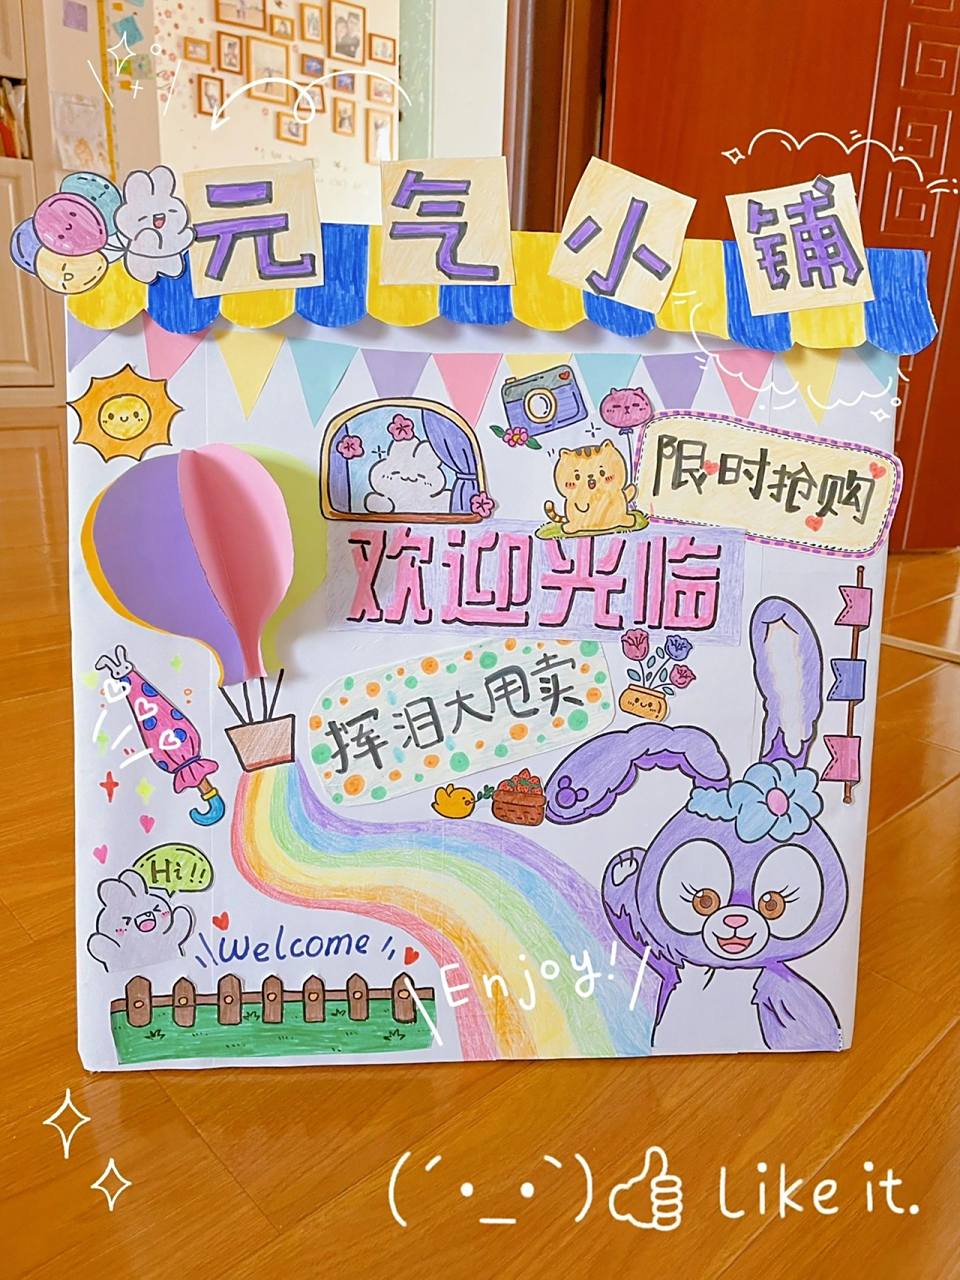 元气小铺
限时抢购
欢迎光临
挥泪大甩卖
Hi!!
Welcome
Enjoy!
Like it.